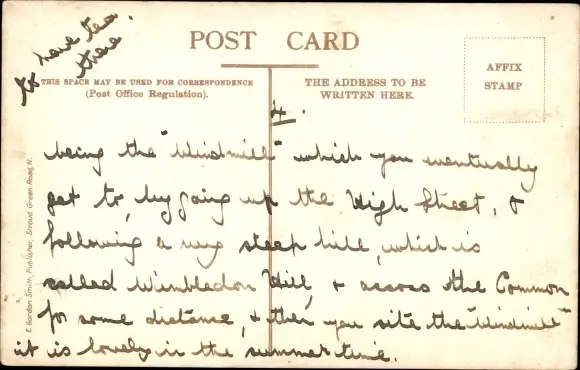 to have tea
there.
POST CARD
THIS SPACE MAY BE USED FOR CORRESPONDENCE
(Post Office Regulation).
THE ADDRESS TO BE
WRITTEN HERE.
AFFIX
STAMP
4.
being the "Windmill" which you eventually
get to, by going up the High Street, &
following a very steep hill, which is
called Wimbledon Hill, & across the Common
for some distance, & then you site the "Windmill"
it is lovely in the summer time.
E. Gordon Smith, Publisher, Stroud Green Road, N.